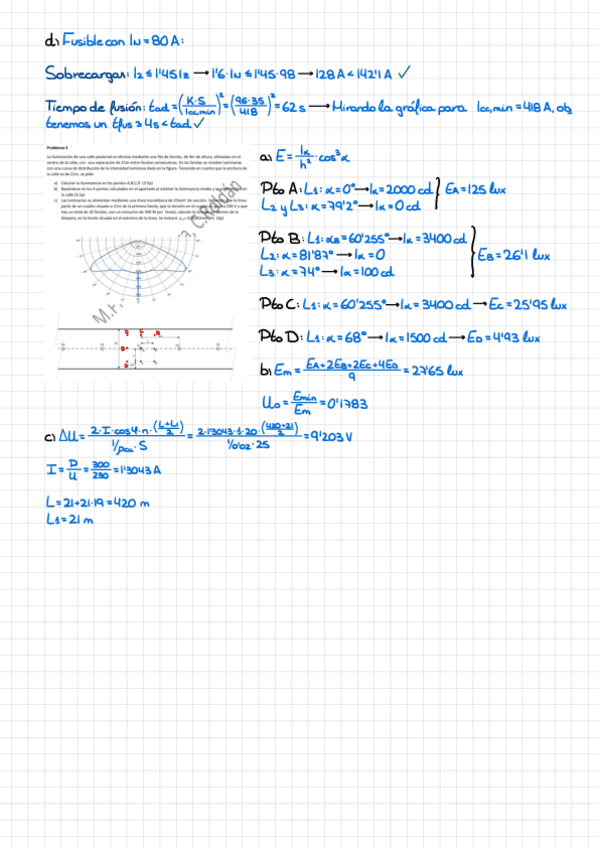 d) Fusible con IN = 80 A:
Sobrecargas: I2 ≤ 1'45 Iz → 1'6 · IN ≤ 1'45 · 98 → 128 A < 142'1 A ✓
Tiempo de fusión: tad = (K·S / Icc,min)² = (96·35 / 418)² = 62 s → Mirando la gráfica para Icc,min = 418 A, ob
tenemos un tfus ≥ 4s < tad ✓
Problema 4
La iluminación de una calle peatonal se efectúa mediante una fila de farolas, de 4m de altura, alineadas en el
centro de la calle, con una separación de 21m entre farolas consecutivas. En las farolas se instalan luminarias
con una curva de distribución de la intensidad luminosa dada en la figura. Teniendo en cuenta que la anchura de
la calle es de 21m, se pide:
a) Calcular la iluminancia en los puntos A,B,C,D
b) Basándose en los 4 puntos calculados en el apartado a) estimar la iluminancia media y la
la calle
c) Las luminarias se alimentan mediante una línea monofásica de 25mm² de sección.
parte de un cuadro situado a 21m de la primera farola, que la tensión en el
hay un total de 20 farolas, con un consumo de 300 W por farola, calcule la
línea, en la farola situada en el extremo de la línea.
a) E = Iα / h² · cos³α
Pto A: L1: α = 0° → Iα = 2000 cd
L2 y L3: α = 79'2° → Iα = 0 cd
} EA = 125 lux
Pto B: L1: αB = 60'255° → Iα = 3400 cd
L2: α = 81'87° → Iα = 0
L3: α = 74° → Iα = 100 cd
} EB = 26'1 lux
Pto C: L1: α = 60'255° → Iα = 3400 cd → EC = 25'95 lux
Pto D: L1: α = 68° → Iα = 1500 cd → ED = 4'93 lux
b) Em = (EA + 2EB + 2EC + 4ED) / 9 = 27'65 lux
U0 = Emin / Em = 0'1783
c) ΔU = 2 · I · cos φ · n · ((L + L1) / 2) / (1/ρ · S) = 2 · 1'3043 · 1 · 20 · ((420 + 21) / 2) / (1/0'02 · 25) = 9'203 V
I = P / U = 300 / 230 = 1'3043 A
L = 21 + 21 · 19 = 420 m
L1 = 21 m